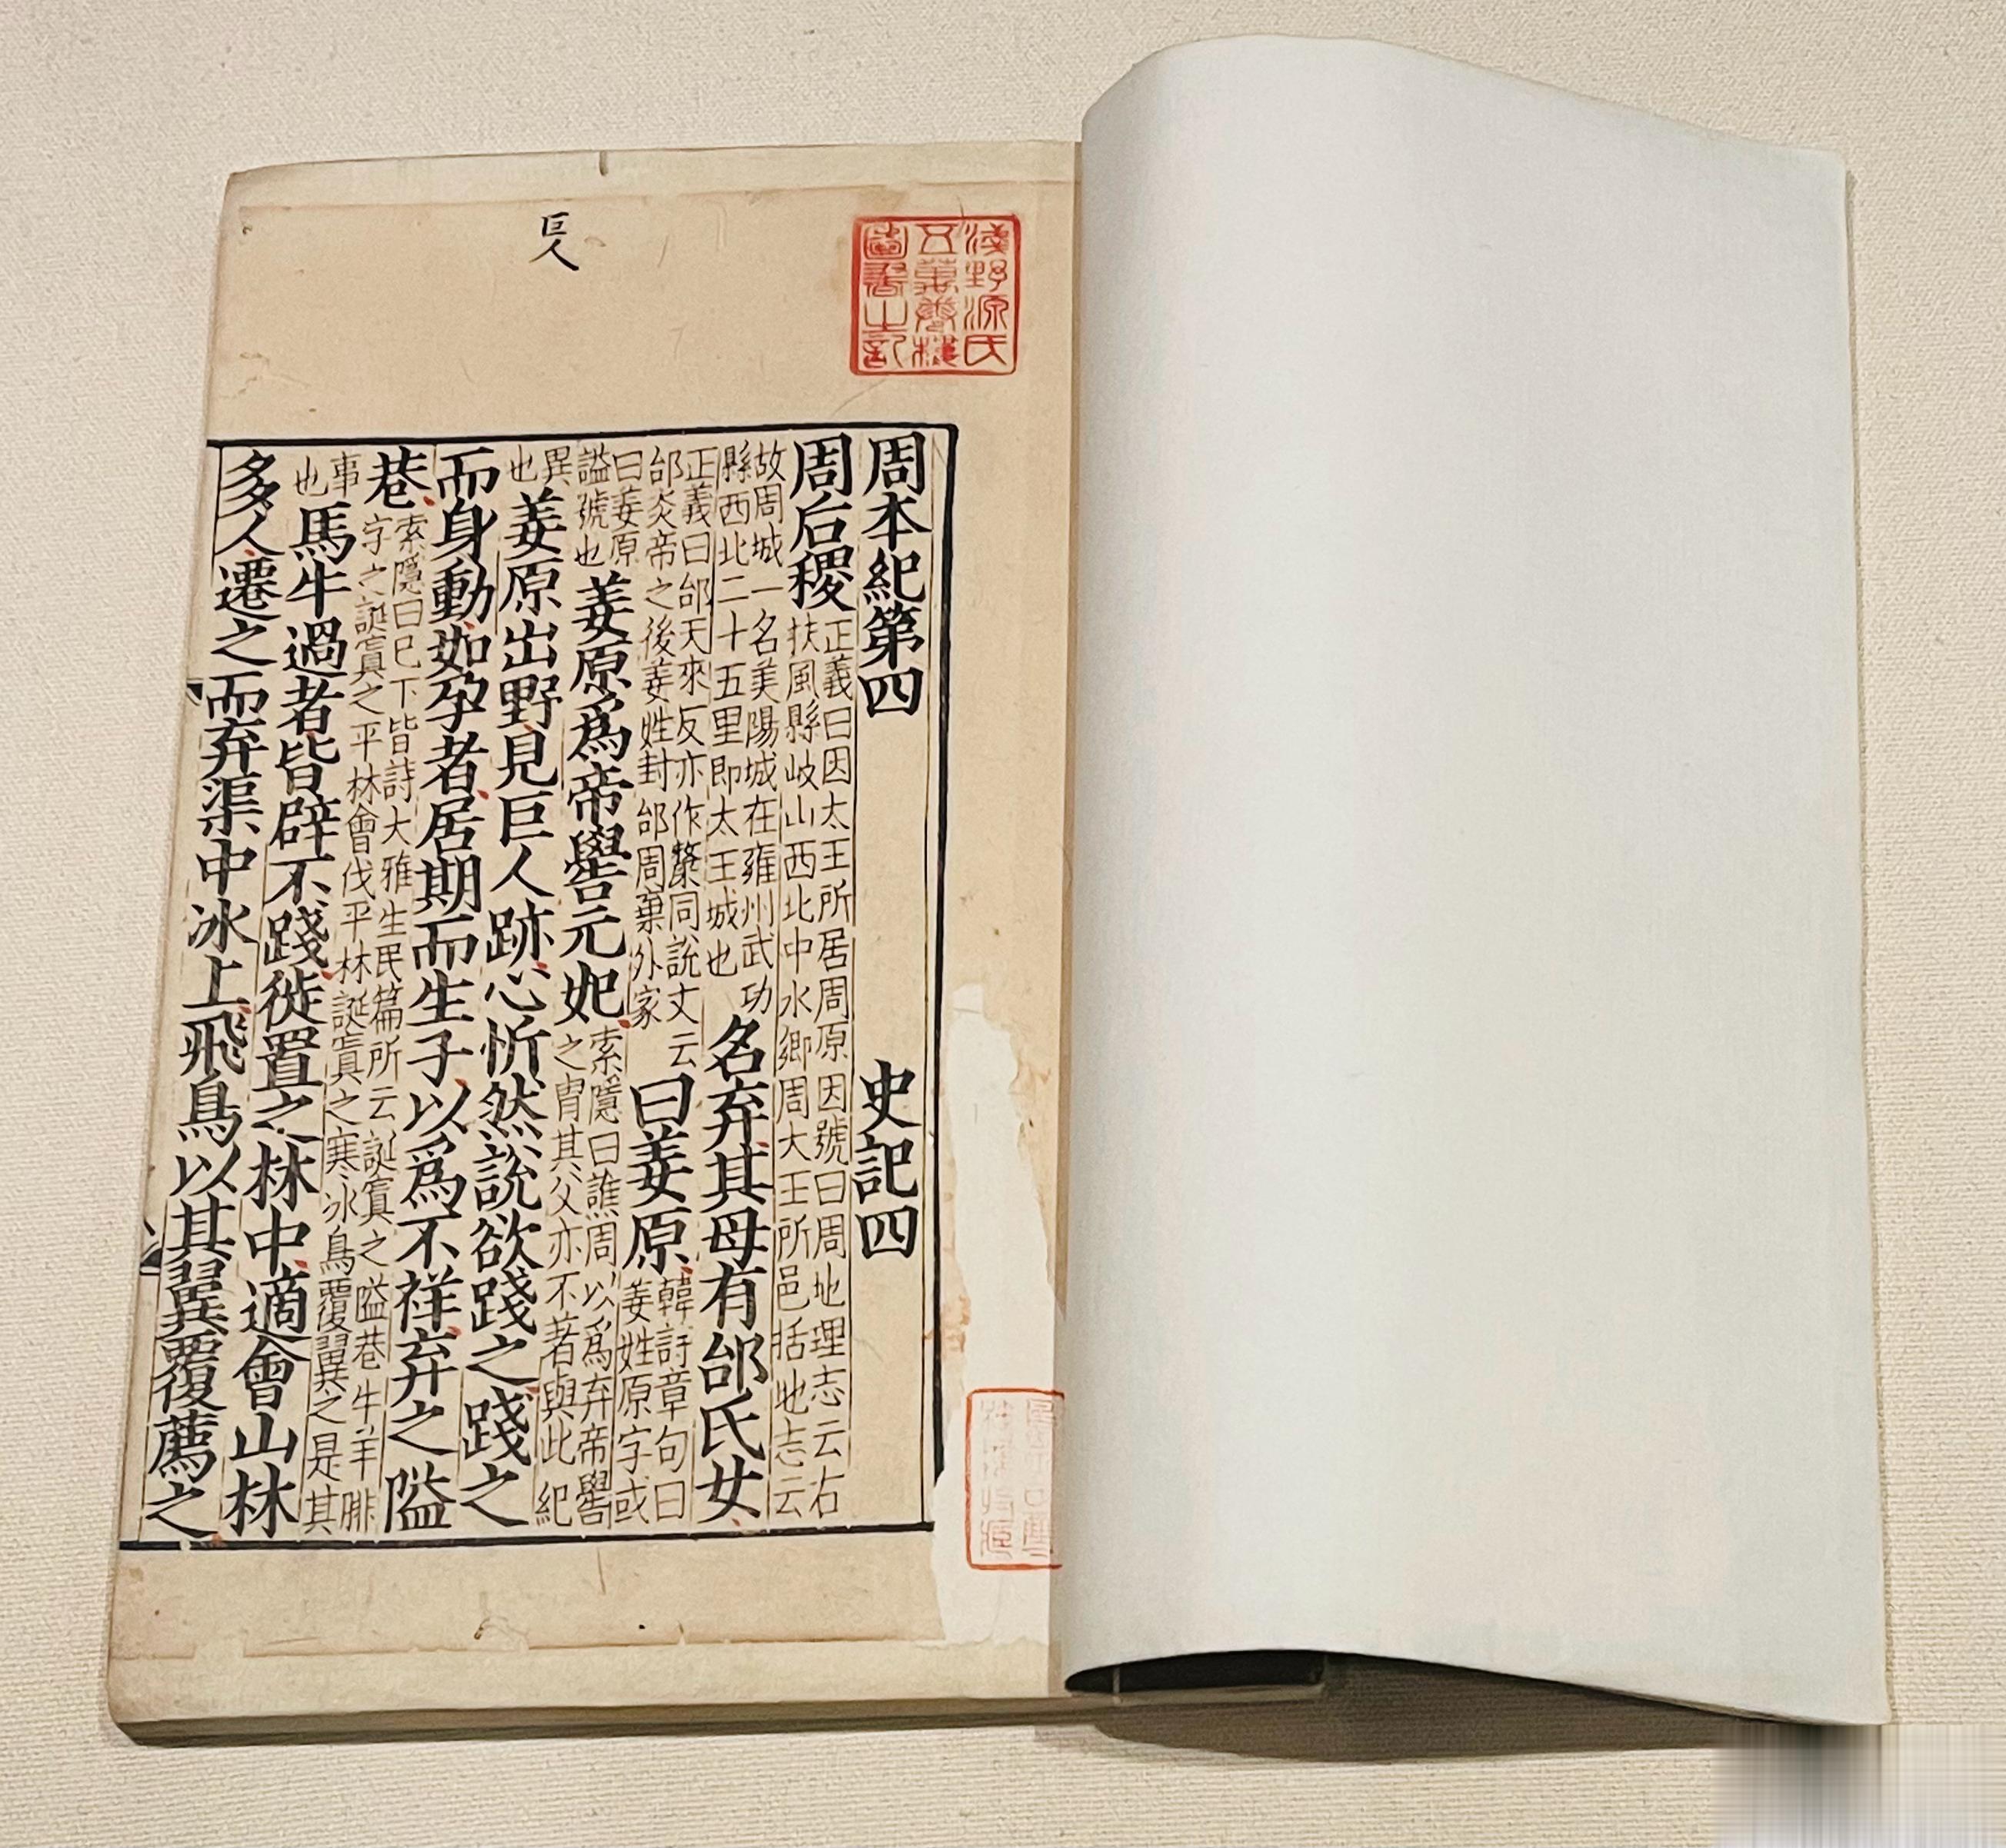 巨人
淺野源氏
五萬卷樓
圖書之記
周本紀第四 史記四
周后稷
正義曰因太王所居周原因號曰周地理志云右
扶風縣岐山西北中水鄉周大王所邑括地志云
故周城一名美陽城在雍州武功
縣西北二十五里即太王城也
名弃其母有邰氏女
正義曰邰天來反亦作斄同說丈云
邰炎帝之後姜姓封邰周棄外家
曰姜原
韓詩章句曰
姜姓原字或
曰姜原
謚號也
姜原爲帝嚳元妃
索隱曰譙周以爲弃帝嚳
之胄其父亦不著與此紀
異
也
姜原出野見巨人跡心忻然說欲踐之踐之
而身動如孕者居期而生子以爲不祥弃之隘
巷
索隱曰巳下皆詩大雅生民篇所云誕寘之隘巷牛羊腓
字之誕寘之平林會伐平林誕寘之寒冰鳥覆翼之是其
事
也
馬牛過者皆辟不踐徙置之林中適會山林
多人遷之而弃渠中冰上飛鳥以其翼覆薦之